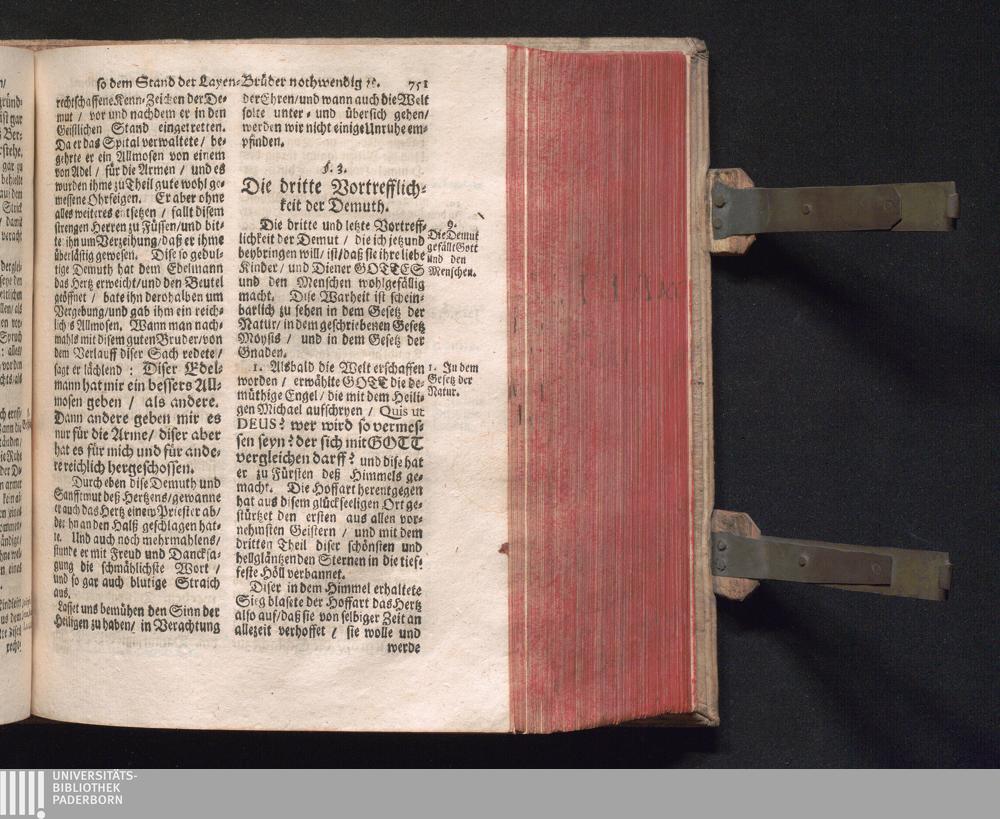 so dem Stand der Layen-Brüder nothwendig ꝛc. 751
rechtschaffene Kenn-Zeichen der De-
mut / vor und nachdem er in den
Geistlichen Stand eingetretten.
Da er das Spital verwaltete / be-
gehrte er ein Allmosen von einem
von Adel / für die Armen / und es
wurden ihme zu Theil gute wohl ge-
messene Ohrfeigen. Er aber ohne
alles weiteres entsetzen / fallt disem
strengen Herren zu Füssen / und bit-
te ihn um Verzeihung / daß er ihme
überlästig gewesen. Dise so gedul-
tige Demuth hat dem Edelmann
das Hertz erweicht / und den Beutel
geöffnet / bate ihn derohalben um
Vergebung / und gab ihm ein reich-
lichs Allmosen. Wann man nach-
mahls mit disem guten Bruder / von
dem Verlauff diser Sach redete /
sagt er lächlend : Diser Edel-
mann hat mir ein bessers All-
mosen geben / als andere.
Dann andere geben mir es
nur für die Arme / diser aber
hat es für mich und für ande-
re reichlich hergeschossen.
Durch eben dise Demuth und
Sanfftmut deß Hertzens / gewanne
er auch das Hertz einem Priester ab /
der ihn an den Halß geschlagen hat-
te. Und auch noch mehrmahlens /
stunde er mit Freud und Dancksa-
gung die schmählichste Wort /
und so gar auch blutige Straich
aus.
Lasset uns bemühen den Sinn der
Heiligen zu haben / in Verachtung
der Ehren / und wann auch die Welt
solte unter- und übersich gehen /
werden wir nicht einige Unruhe em-
pfinden.
§. 3.
Die dritte Vortrefflich-
keit der Demuth.
Die dritte und letzte Vortreff-
lichkeit der Demut / die ich jetzund
beybringen will / ist / daß sie ihre liebe
Kinder / und Diener GOTTES
und den Menschen wohlgefällig
macht. Dise Warheit ist schein-
barlich zu sehen in dem Gesetz der
Natur / in dem geschriebenen Gesetz
Moysis / und in dem Gesetz der
Gnaden.
1. Alsbald die Welt erschaffen
worden / erwählte GOTT die de-
müthige Engel / die mit dem Heili-
gen Michael aufschryen / Quis ut
DEUS? wer wird so vermes-
sen seyn? der sich mit GOTT
vergleichen darff? und dise hat
er zu Fürsten deß Himmels ge-
macht. Die Hoffart herentgegen
hat aus disem glückseeligen Ort ge-
stürtzet den ersten aus allen vor-
nehmsten Geistern / und mit dem
dritten Theil diser schönsten und
hellgläntzenden Sternen in die tief-
feste Höll verbannet.
Diser in dem Himmel erhaltete
Sieg blasete der Hoffart das Hertz
also auf / daß sie von selbiger Zeit an
allezeit verhoffet / sie wolle und
werde
9.
Die Demut
gefällt Gott
und den
Menschen.
1. In dem
Gesetz der
Natur.
UNIVERSITÄTS-
BIBLIOTHEK
PADERBORN